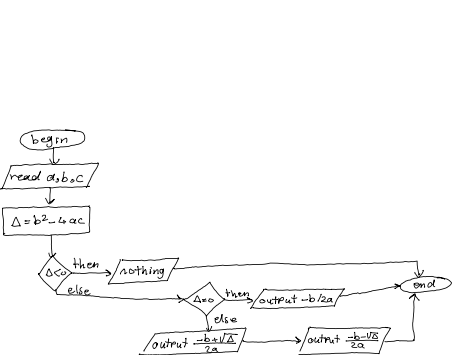 begin
read a,b,c
Δ=b²-4ac
Δ<0
then
nothing
end
else
Δ=0
then
output -b/2a
else
output -b+√Δ/2a
output -b-√Δ/2a